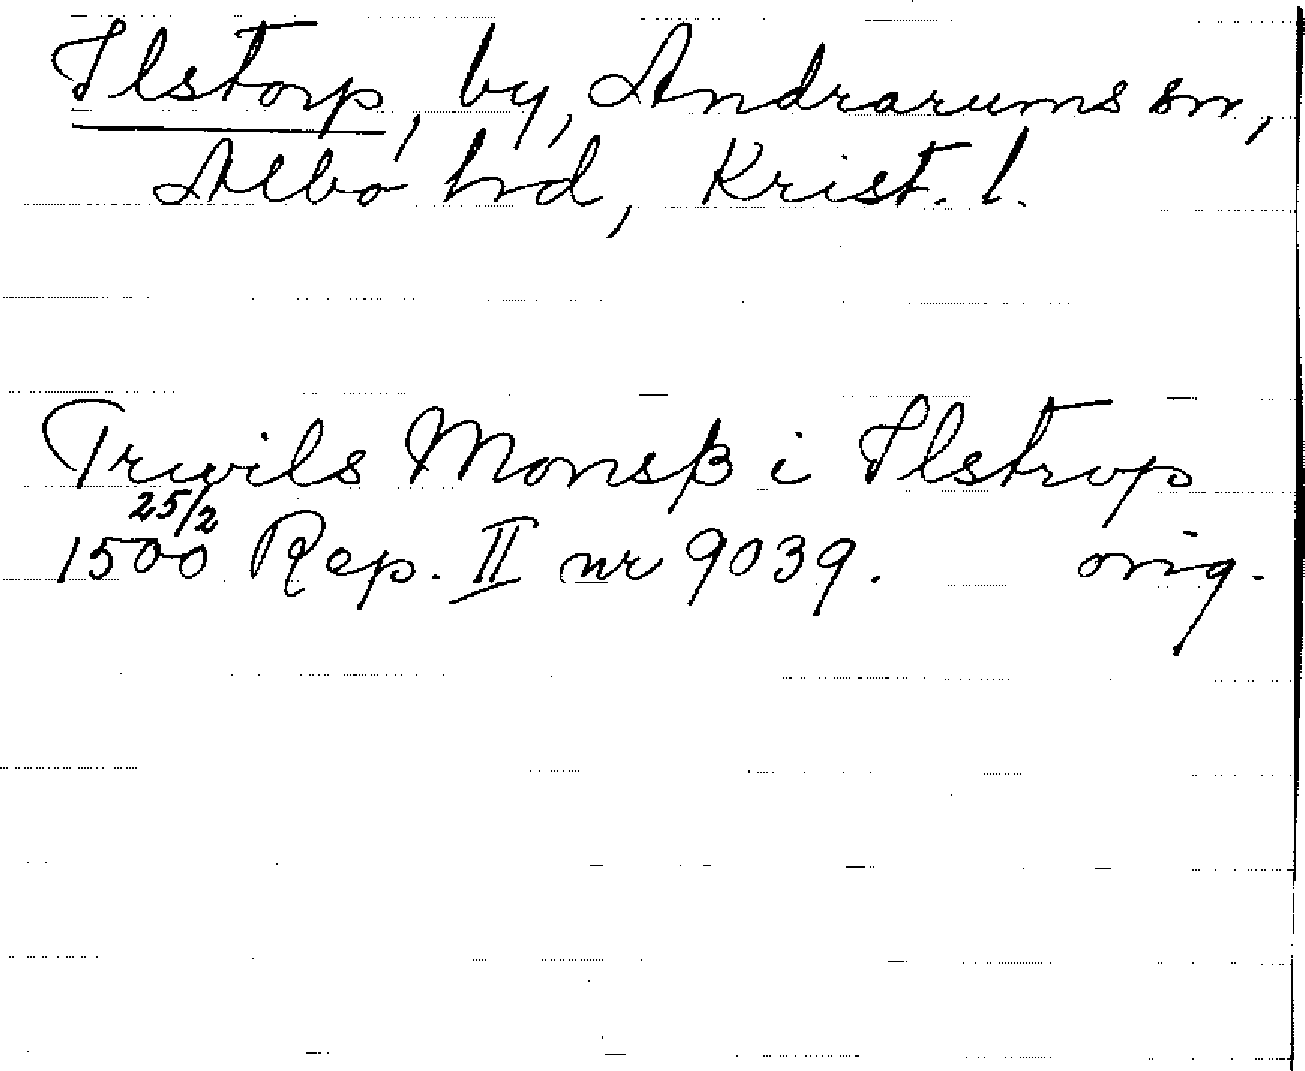 Ilstorp, by, Andrarums sn,
Albo hd, Krist. l.
Truvils Monsß i Ilstrop
25/2
1500 Rep. II nr 9039. orig.